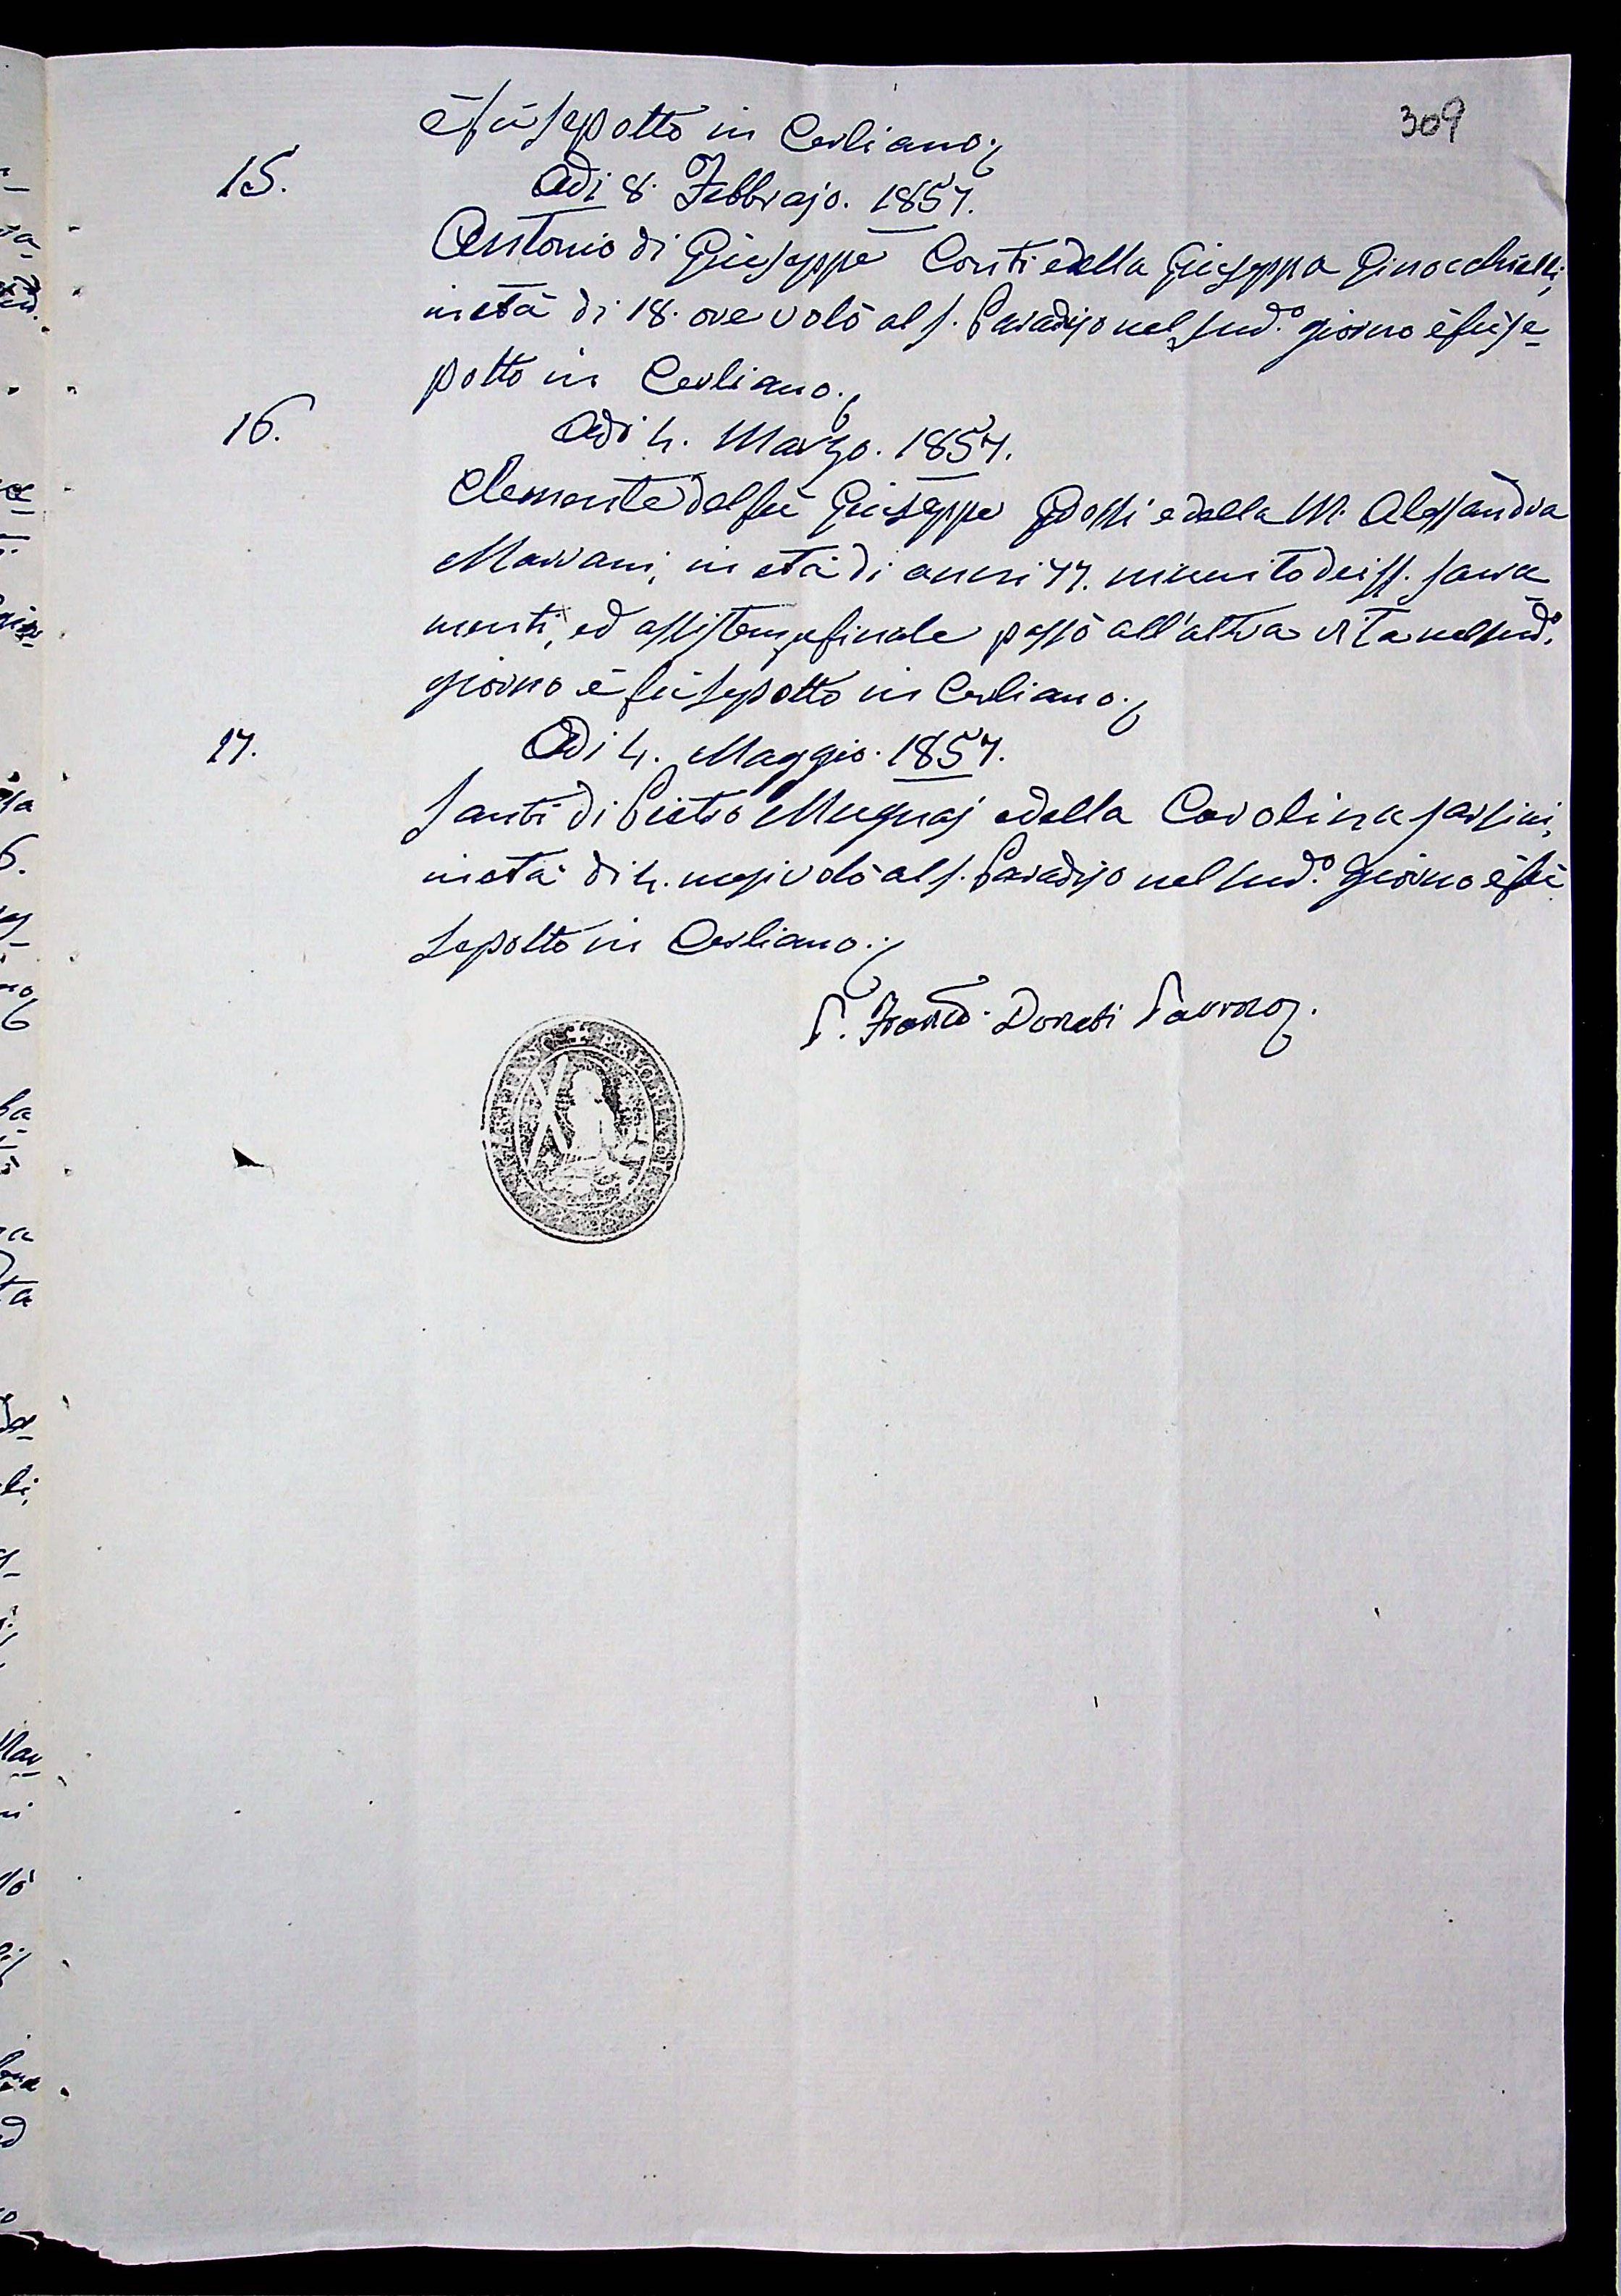 309
è fù sepolto in Cerliano.
15. Adi 8. Febbrajo. 1857.
Antonio di Giuseppe Conti e della Giuseppa Ginocchielli,
in età di 18. ore volò al S. Paradiso nel sud.o giorno è fù se-
polto in Cerliano.
16. Adi 4. Marzo. 1857.
Clemente del fù Giuseppe e della M. Alessandra
Marrani, in età di anni 77. munito dei SS. Sacra-
menti, ed assistenza finale passò all'altra vita nel sud.o
giorno è fù sepolto in Cerliano.
17. Adi 4. Maggio. 1857.
Santi di Pietro Mugnaj e della Carolina Sarsini,
in età di 4. mesi volò al S. Paradiso nel sud.o giorno è fù
sepolto in Cerliano.
P. Franco. Donati Parroco.